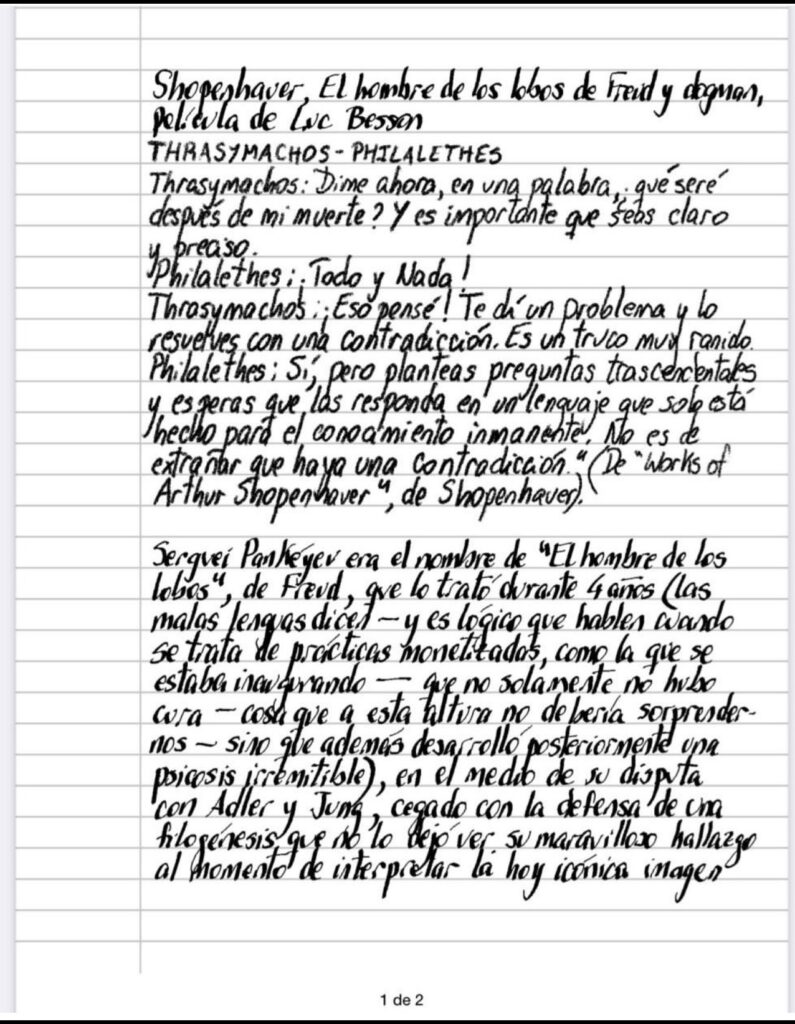 Shopenhaver, El hombre de los lobos de Freud y dogman,
película de Luc Besson
THRASYMACHOS - PHILALETHES
Thrasymachos: Dime ahora, en una palabra, ¿qué seré
después de mi muerte? Y es importante que seas claro
y preciso.
Philalethes: ¡Todo y Nada!
Thrasymachos: ¡Eso pensé! Te di un problema y lo
resuelves con una contradicción. Es un truco muy ranido.
Philalethes: Sí, pero planteas preguntas trascendentales
y esperas que las responda en un lenguaje que solo está
hecho para el conocimiento inmanente. No es de
extrañar que haya una contradicción." (De "Works of
Arthur Shopenhaver", de Shopenhaver).
Serguei Pankéyev era el nombre de "El hombre de los
lobos", de Freud, que lo trató durante 4 años (las
malas lenguas dicen — y es lógico que hablen cuando
se trata de prácticas monetizadas, como la que se
estaba inaugurando — que no solamente no hubo
cura — cosa que a esta altura no debería sorprender-
nos — sino que además desarrolló posteriormente una
psicosis irremitible), en el medio de su disputa
con Adler y Jung, cegado con la defensa de una
filogénesis que no lo dejó ver su maravilloso hallazgo
al momento de interpretar la hoy icónica imagen
1 de 2